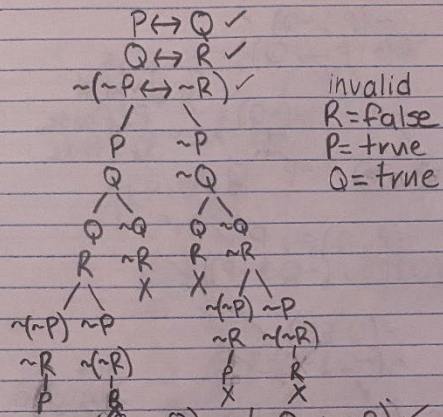 P↔Q ✓
Q↔R ✓
~(~P↔~R) ✓
invalid
R=false
P=true
Q=true
P ~P
Q ~Q
Q ~Q Q ~Q
R ~R R ~R
X X
~(~P) ~P ~(~P) ~P
~R ~(~R) ~R ~(~R)
P P R
X X